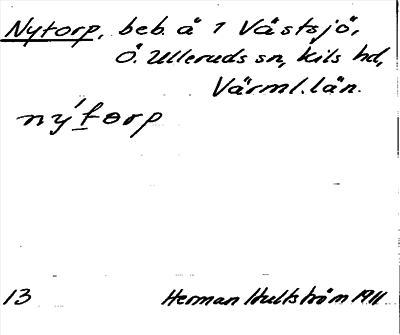 Nytorp, beb. å 1 Västsjö,
Ö. Ulleruds sn, Kils hd,
Värml. län.
ny´torp
13 Herman Hultström 1911